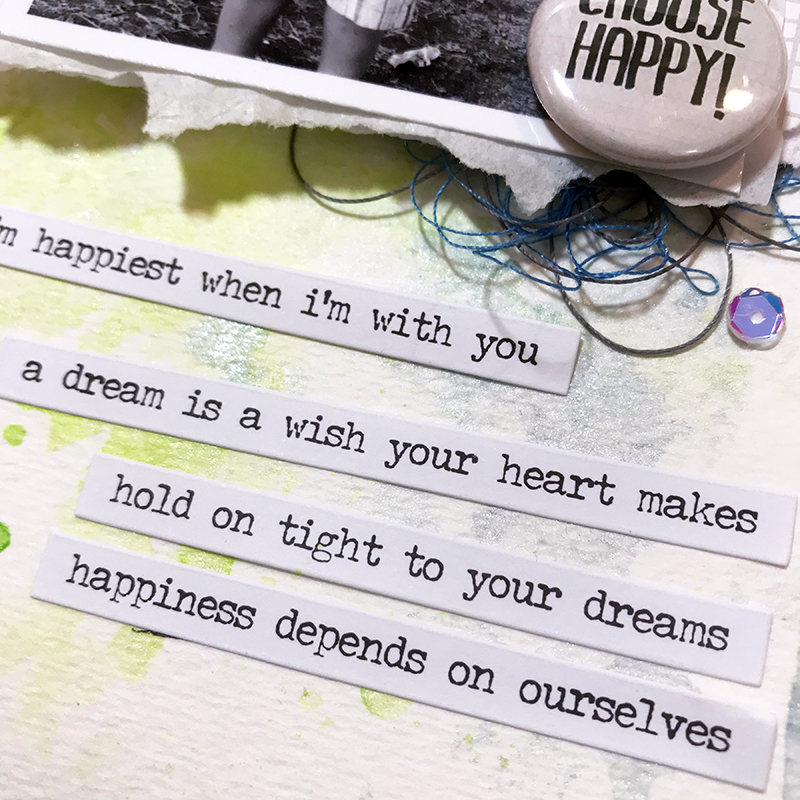 CHOOSE
HAPPY!
i'm happiest when i'm with you
a dream is a wish your heart makes
hold on tight to your dreams
happiness depends on ourselves